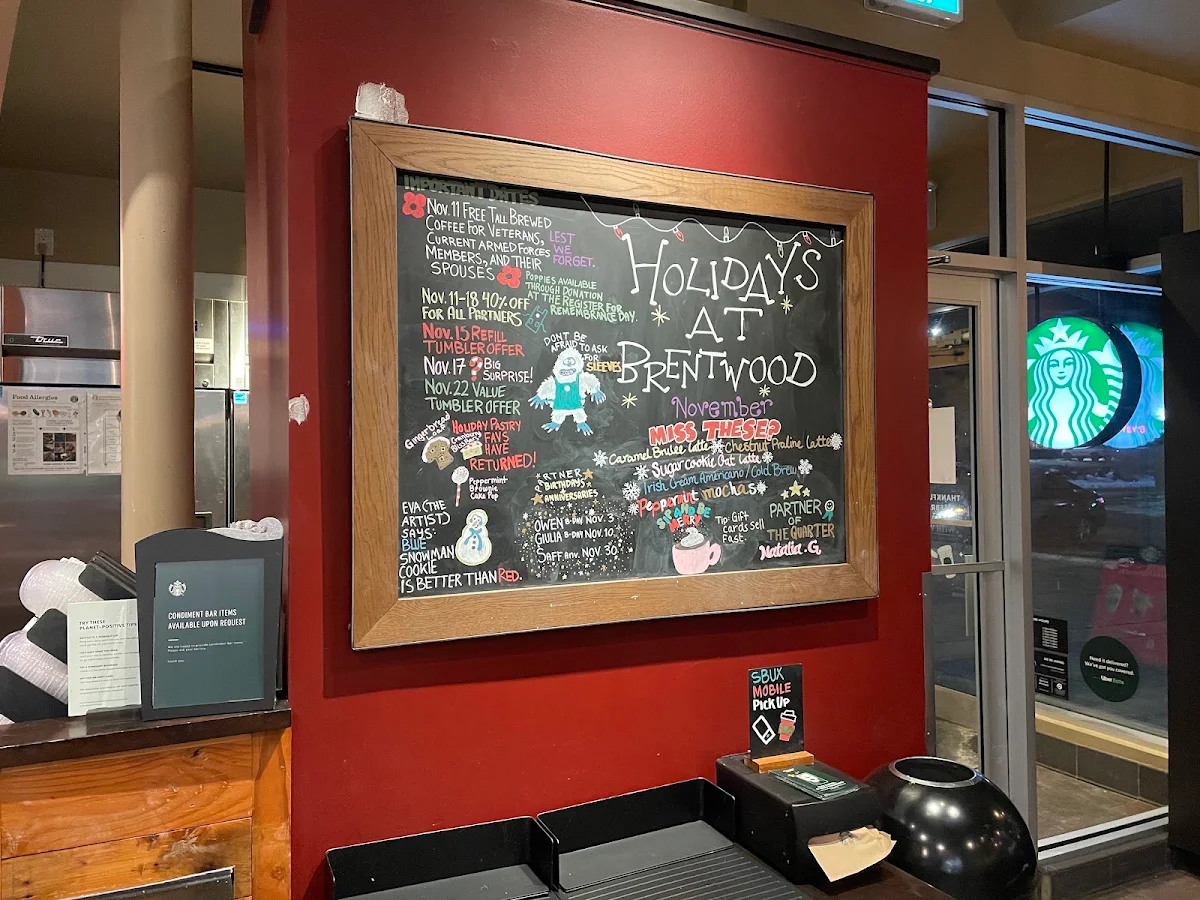 IMPORTANT DATES
Nov. 11 FREE TALL BREWED
COFFEE FOR VETERANS,
CURRENT ARMED FORCES
MEMBERS, AND THEIR
SPOUSES
LEST
WE
FORGET.
POPPIES AVAILABLE
THROUGH DONATION
AT THE REGISTER FOR
REMEMBRANCE DAY.
Nov. 11-18 40% OFF
FOR ALL PARTNERS
Nov. 15 REFILL
TUMBLER OFFER
Nov. 17 ? BIG
SURPRISE!
Nov. 22 VALUE
TUMBLER OFFER
DON'T BE
AFRAID TO ASK
FOR
SLEEVES
HOLIDAY PASTRY
FAVS
HAVE
RETURNED!
Gingerbread
Loaf
Cranberry
Bliss
Peppermint
Brownie
Cake Pop
EVA (THE
ARTIST)
SAYS:
BLUE
SNOWMAN
COOKIE
IS BETTER THAN RED.
PARTNER
BIRTHDAYS
ANNIVERSARIES
OWEN B-DAY NOV. 3
GIULIA B-DAY NOV. 10
SAFF anv. NOV. 30
HOLIDAYS
AT
BRENTWOOD
November
MISS THESE?
Caramel Brulee Latte
Chestnut Praline Latte
Sugar Cookie Oat Latte
Irish Cream Americano / Cold Brew
Peppermint mochas
SIP AND BE
MERRY
Tip: Gift
cards sell
fast.
PARTNER
OF
THE QUARTER
Natalia .G.
true
Food Allergies
TRY THESE
PLANET-POSITIVE TIPS
CONDIMENT BAR ITEMS
AVAILABLE UPON REQUEST
SBUX
MOBILE
PICK UP
THANKFUL
Need it delivered?
We've got you covered.
Uber Eats